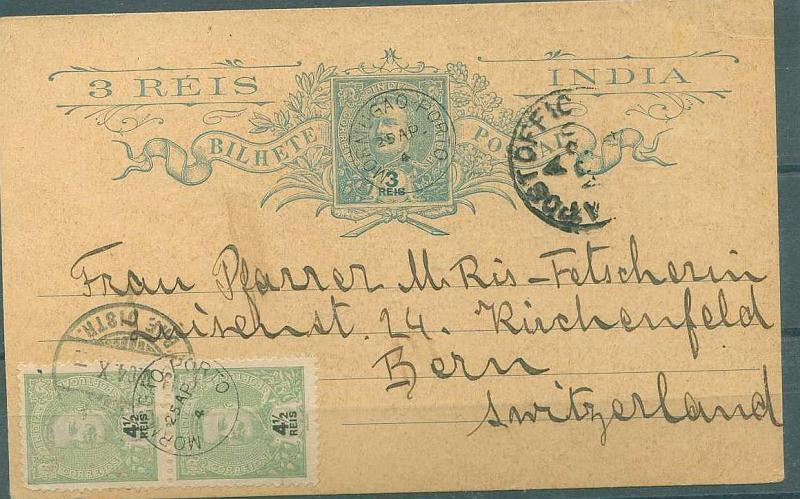 3 RÉIS
INDIA
BILHETE POSTAL
INDIA
3
REIS
MORMUGAO-PORTO
25 AP.
4
POST OFFIC
Frau Pfarrer M. Ris-Fetscherin
Luisenst. 24. Kirchenfeld
Bern
Switzerland
4½
REIS
CORREIOS
4½
REIS
CORREIOS
PORTO
25 AP.
4
DISTR.